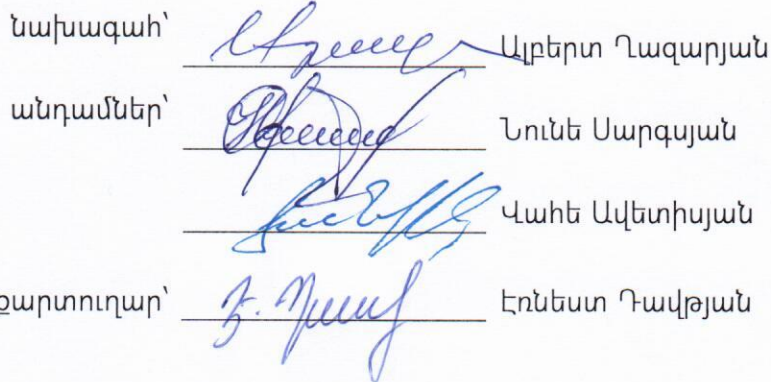 նախագահ՝ Ալբերտ Ղազարյան
անդամներ՝ Նունե Սարգսյան
Վահե Ավետիսյան
քարտուղար՝ Էռնեստ Դավթյան